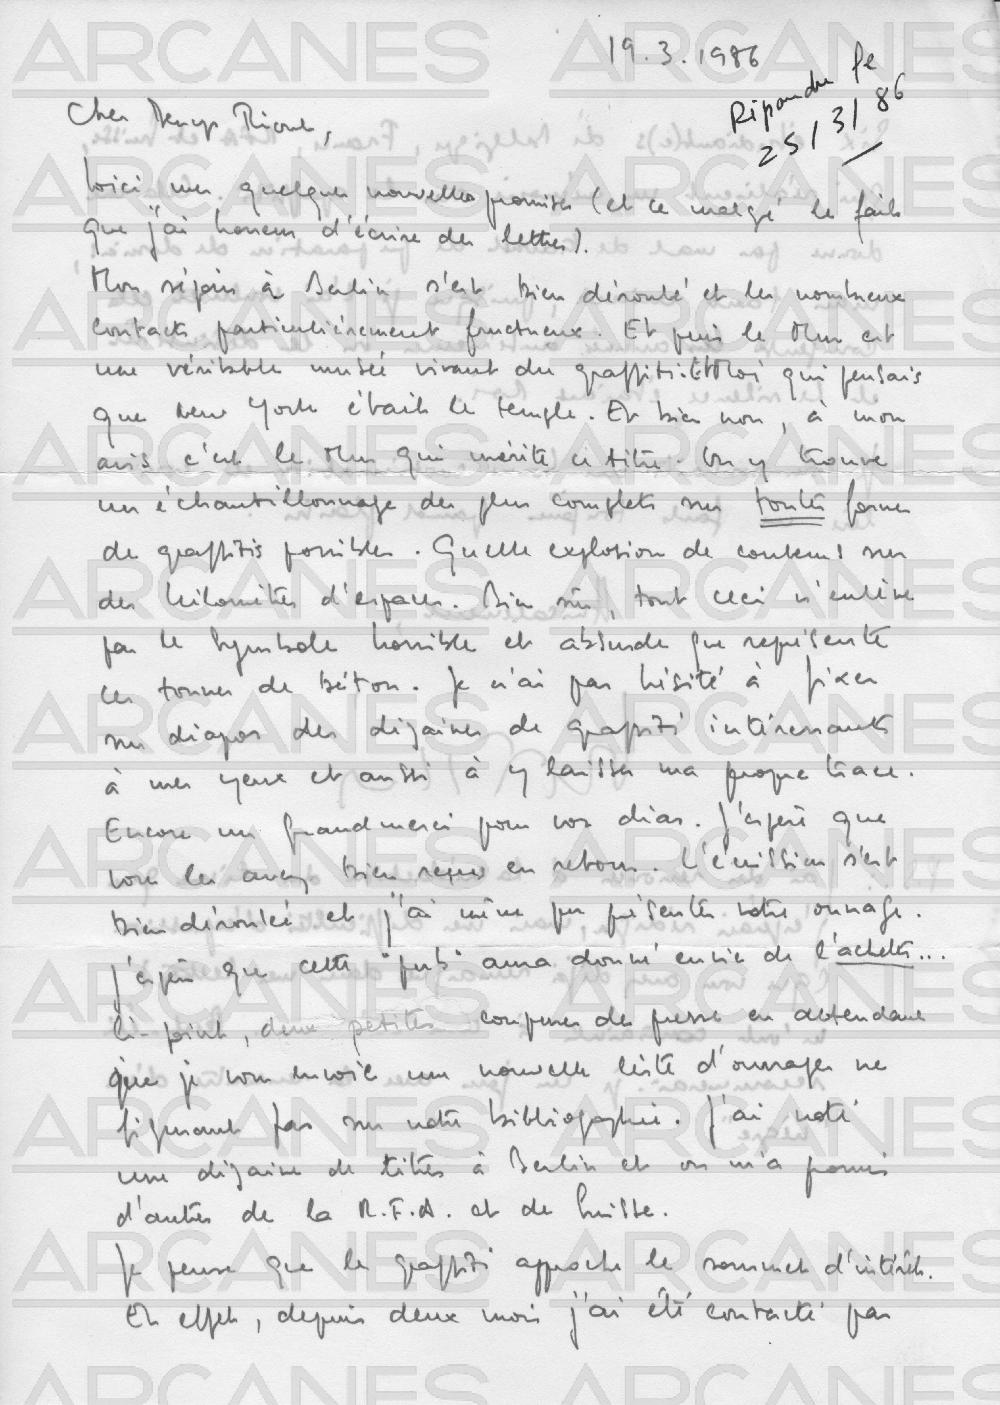 19.3.1986
Répondu le
25/3/86
Cher Denys Riout,
Voici mes quelques nouvelles promises (et ce malgré le fait
que j'ai horreur d'écrire des lettres).
Mon séjour à Berlin s'est bien déroulé et les nombreux
contacts particulièrement fructueux. Et puis le Mur est
une véritable musée vivant du graffiti. Et Moi qui pensais
que New York était le temple. Et bien non, à mon
avis c'est le Mur qui mérite ce titre. On y trouve
un échantillonnage des plus complets sur toutes formes
de graffitis possibles. Quelle explosion de couleurs sur
des kilomètres d'espaces. Bien sûr, tout ceci n'enlève
pas le symbole horrible et absurde que représente
ces tonnes de béton. Je n'ai pas hésité à fixer
sur diapos des dizaines de graffiti intéressants
à mes yeux et aussi à y laisser ma propre trace.
Encore un grand merci pour vos dias. J'espère que
vous les avez bien reçues en retour. L'émission s'est
bien déroulée et j'ai même pu présenter votre ouvrage.
J'espère que cette "pub" aura donné envie de l'acheter...
Ci-joint, deux petites coupures de presse en attendant
que je vous envoie une nouvelle liste d'ouvrages ne
figurant pas sur votre bibliographie. J'ai noté
une dizaine de titres à Berlin et on m'a promis
d'autres de la R.F.A. et de Suisse.
Je pense que le graffiti approche le sommet d'intérêt.
En effet, depuis deux mois j'ai été contacté par
ARCANES